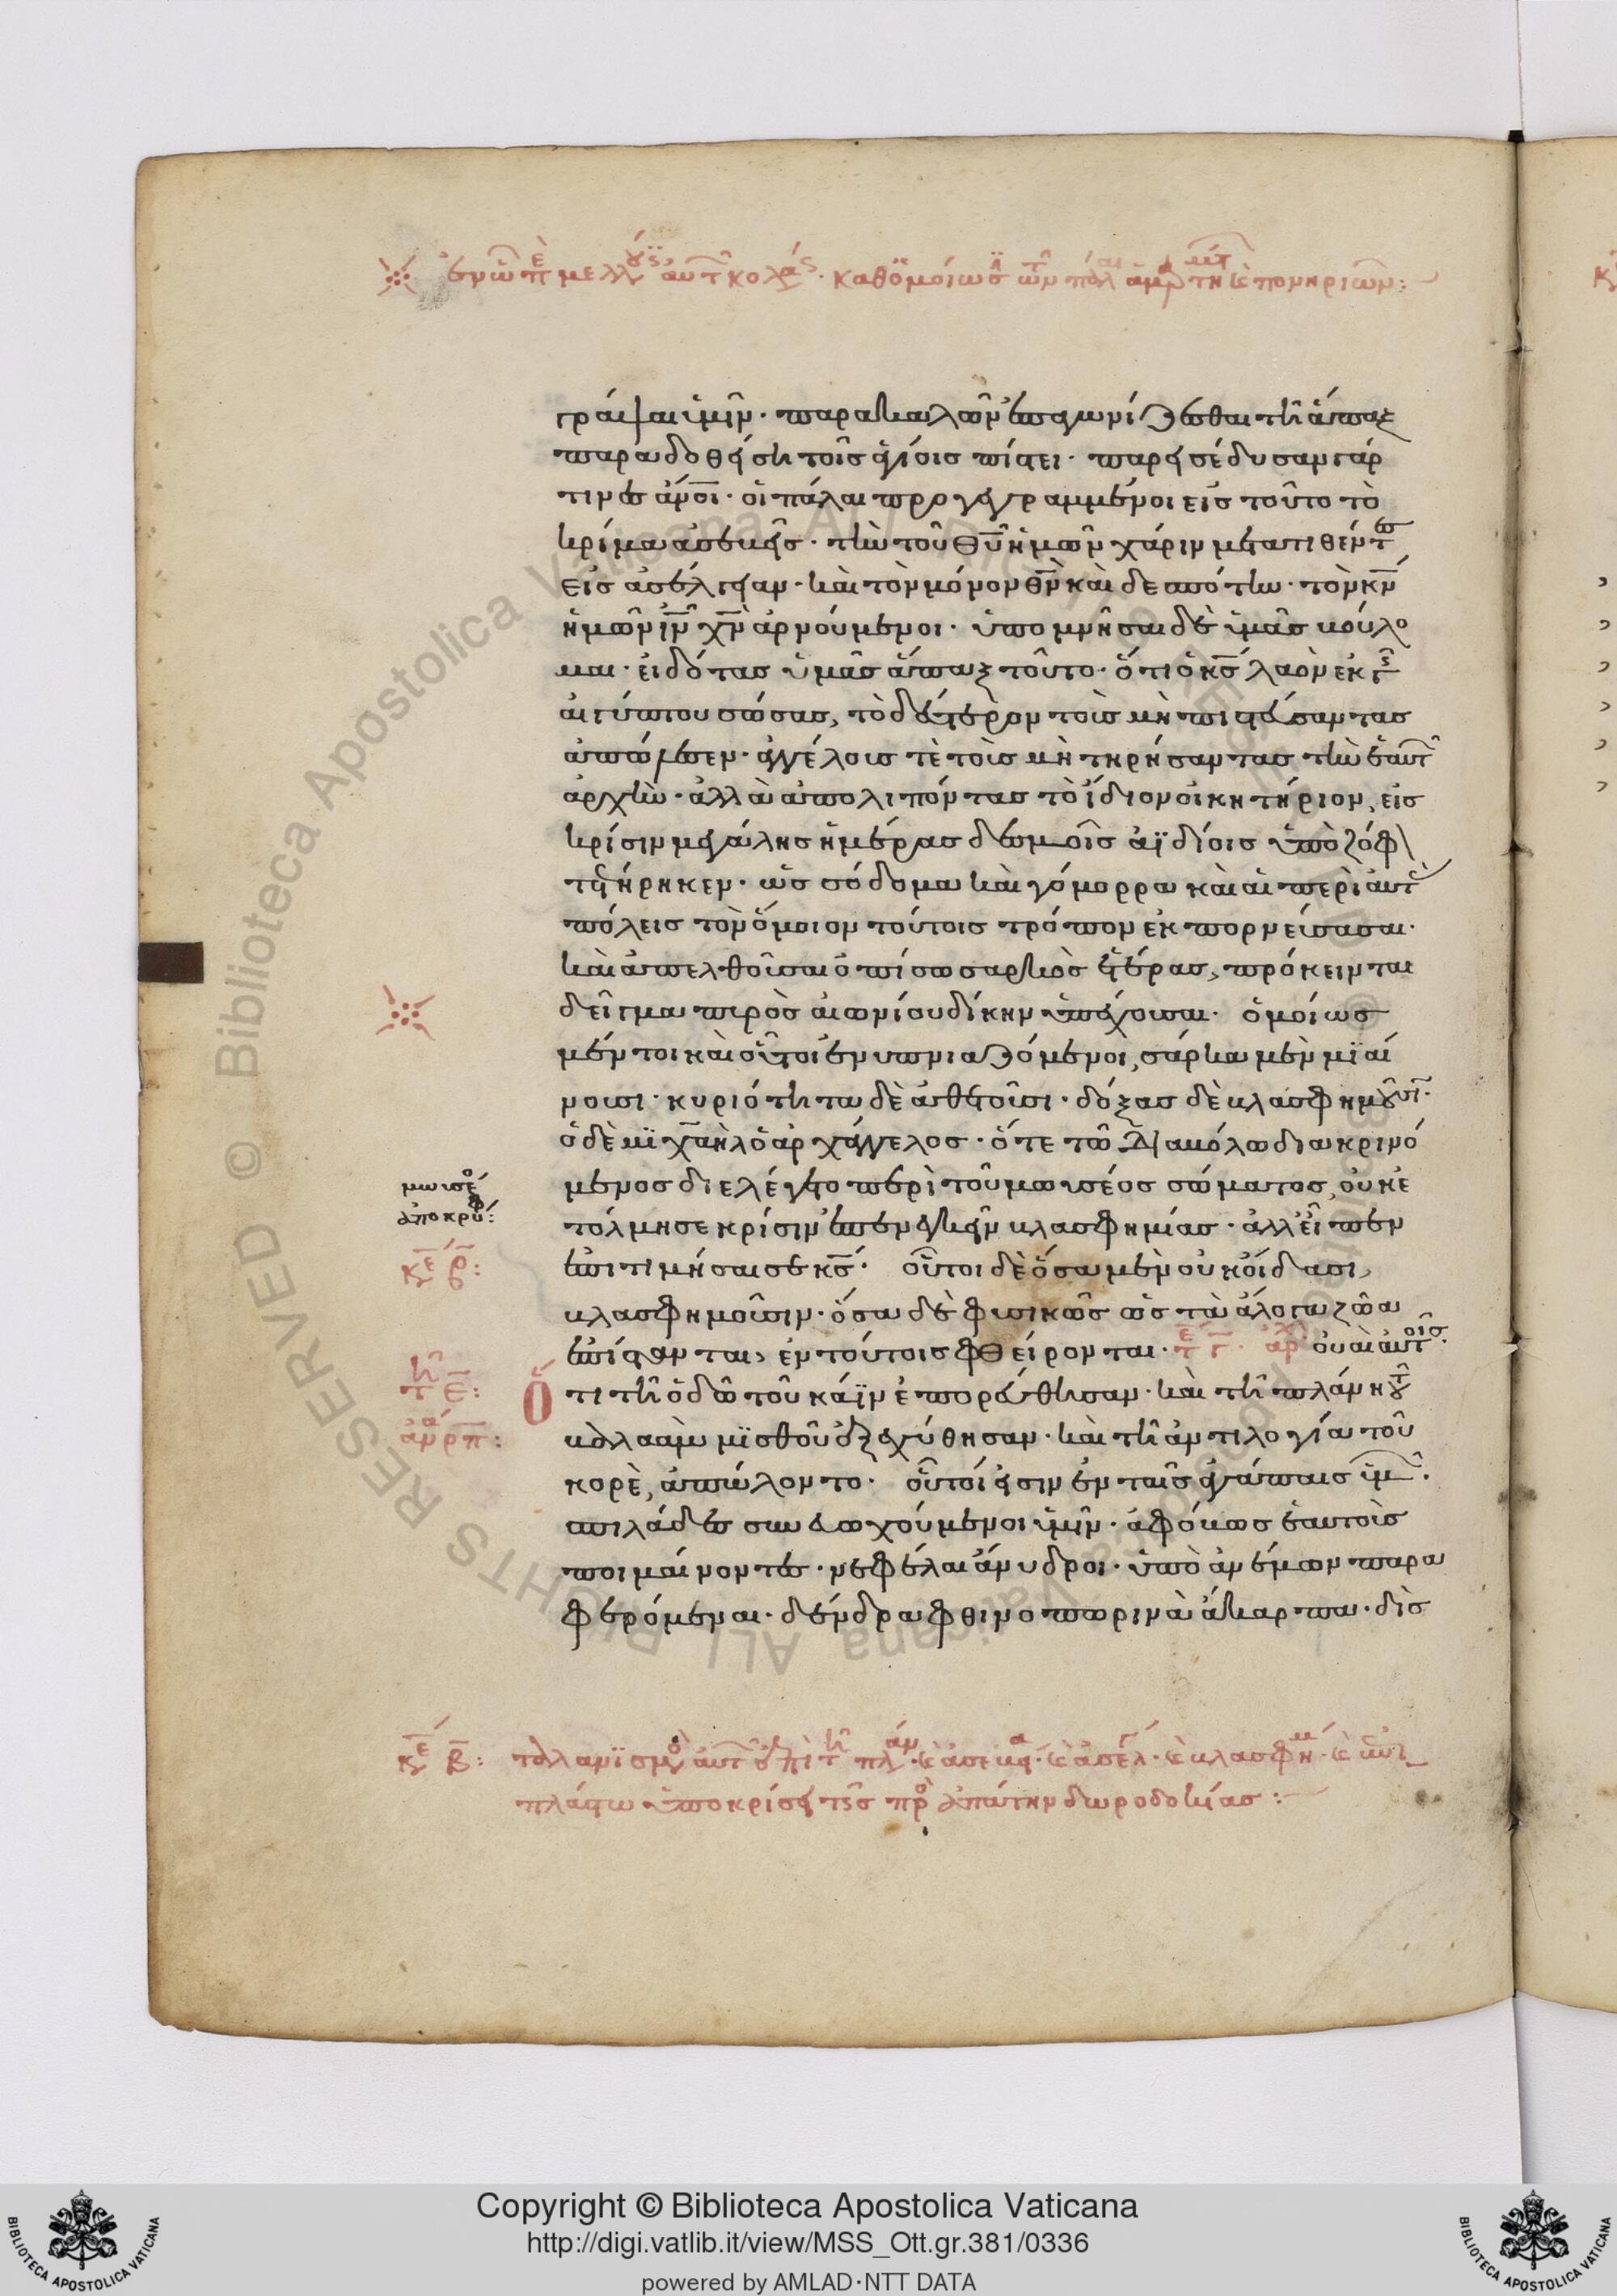 γράψαι ὑμῖν· παρακαλῶν ἐπαγωνίζεσθαι τῆ ἅπαξ
παραδοθείση τοῖς ἁγίοις πίστει· παρεισέδυσαν γάρ
τινες ἄν̅οι̅· οἱ πάλαι προγεγραμμένοι εἰς τοῦτο τὸ
κρίμα ἀσεβεῖς· τὴν τοῦ θ̅υ̅ ἡμῶν χάριν μετατιθέντες
εἰς ἀσέλγειαν· καὶ τὸν μόνον θ̅ν̅ καὶ δεσπότην· τὸν κ̅ν̅
ἡμῶν ἰ̅ν̅ χ̅ν̅ ἀρνούμενοι· ὑπομνῆσαι δὲ ὑμᾶς βούλο
μαι· εἰδότας ὑμᾶς ἅπαξ τοῦτο· ὅτι ὁ κ̅ς̅ λαὸν ἐκ γῆς
αἰγύπτου σώσας, τὸ δεύτερον τοὺς μὴ πιστεύσαντας
ἀπώλεσεν· ἀγγέλους τὲ τοὺς μὴ τηρήσαντας τὴν ἑαυτῶν
ἀρχὴν· ἀλλὰ ἀπολιπόντας τὸ ἴδιον οἰκητήριον, εἰς
κρίσιν μεγάλης ἡμέρας δεσμοῖς ἀϊδίοις ὑπὸ ζόφον
τετήρηκεν· ὡς σόδομα καὶ γόμορρα καὶ αἱ περὶ αὐτὰς
πόλεις τὸν ὅμοιον τούτοις τρόπον ἐκπορνεύσασαι·
καὶ ἀπελθοῦσαι ὀπίσω σαρκὸς ἑτέρας, πρόκεινται
δεῖγμα πυρὸς αἰωνίου δίκην ὑπέχουσαι· ὁμοίως
μέντοι καὶ οὗτοι ἐνυπνιαζόμενοι, σάρκα μὲν μϊαί
νουσι· κυριότητα δὲ ἀθετοῦσι· δόξας δὲ βλασφημοῦσι·
ὁ δὲ μϊχαὴλ ὁ ἀρχάγγελος· ὅτε τῶ διαβόλω διακρινό
μενος διελέγετο περὶ τοῦ μωυσέος σώματος, οὐκ ἐ
τόλμησε κρίσιν ἐπενεγκεῖν βλασφημίας· ἀλλ' εἶπεν
ἐπιτιμήσαι σε κ̅ς̅· οὗτοι δὲ ὅσα μὲν οὐκ οἴδασι,
βλασφημοῦσιν· ὅσα δὲ φυσικῶς ὡς τὰ ἄλογα ζῶα
ἐπίστανται, ἐν τούτοις φθείρονται· τε γ· ἀρχ οὐαὶ αὐτοῖς·
Ὅτι τῆ ὁδῶ τοῦ κάϊν ἐπορεύθησαν· καὶ τῆ πλάνη τοῦ
βαλαὰμ μϊσθοῦ ἐξεχύθησαν· καὶ τῆ ἀντιλογία τοῦ
κορὲ, ἀπώλοντο· οὗτοί εἰσιν ἐν ταῖς ἀγάπαις ὑμῶν·
σπιλάδες συνευωχούμενοι ὑμῖν· ἀφόβως ἑαυτοὺς
ποιμαίνοντες· νεφέλαι ἄνυδροι· ὑπὸ ἀνέμων παρα
φερόμεναι· δένδρα φθινοπωρινὰ ἄκαρπα· δὶς
μωυσέ
ἀποκρύφ:
Copyright © Biblioteca Apostolica Vaticana
http://digi.vatlib.it/view/MSS_Ott.gr.381/0336
powered by AMLAD·NTT DATA